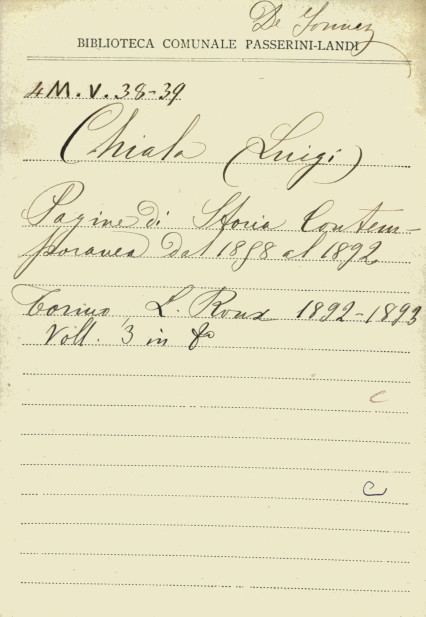 De
BIBLIOTECA COMUNALE PASSERINI-LANDI
4 M. V. 38-39
Chiala (Luigi)
Pagine di Storia Contem-
poranea dal 1858 al 1892
Torino, L. Roux 1892-1893
Voll. 3 in 8º
c
c